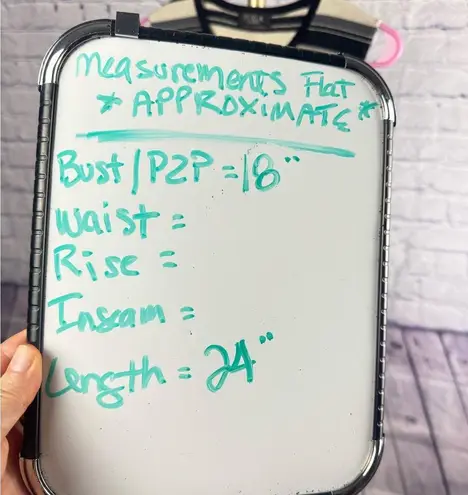 Measurements Flat
* APPROXIMATE *
Bust/P2P = 18"
Waist =
Rise =
Inseam =
Length = 24"